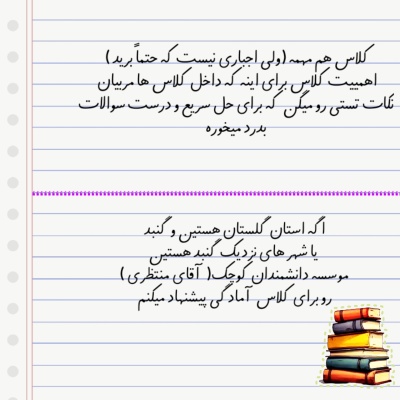 کلاس هم مهمه (ولی اجباری نیست که حتماً برید)
اهمییت کلاس برای اینه که داخل کلاس ها مربیان
نکات تستی رو میگن که برای حل سریع و درست سوالات
بدرد میخوره
اگه استان گلستان هستین و گنبد
یا شهر های نزدیک گنبد هستین
موسسه دانشمندان کوچک( آقای منتظری )
رو برای کلاس آمادگی پیشنهاد میکنم